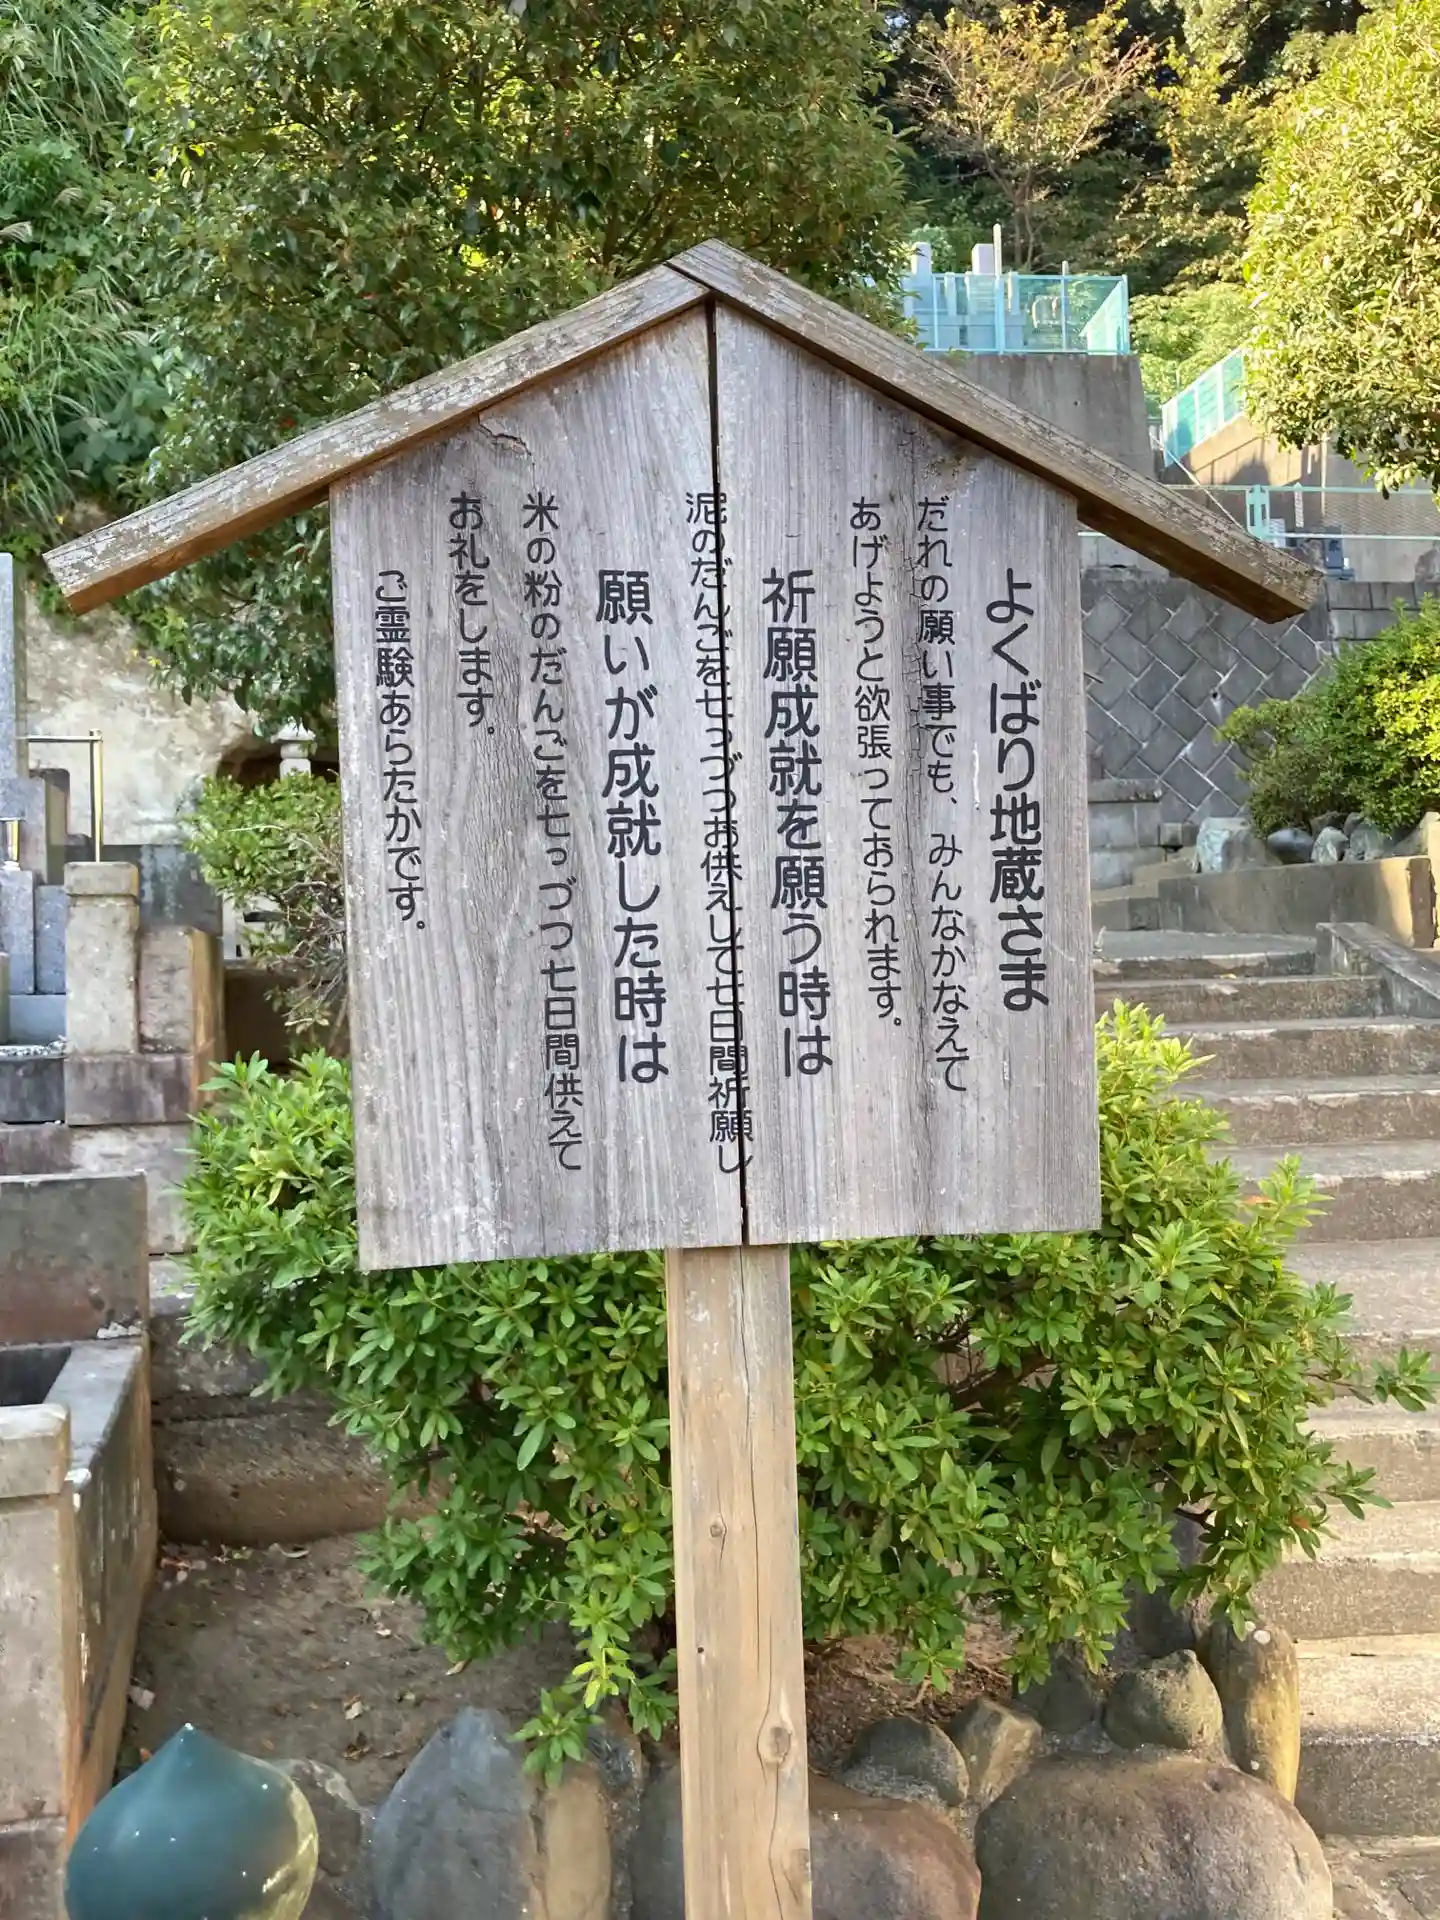 よくばり地蔵さま
だれの願い事でも、みんなかなえて
あげようと欲張っておられます。
祈願成就を願う時は
泥のだんごを七っづつお供えして七日間祈願し
願いが成就した時は
米の粉のだんごを七っづつ七日間供えて
お礼をします。
ご霊験あらたかです。